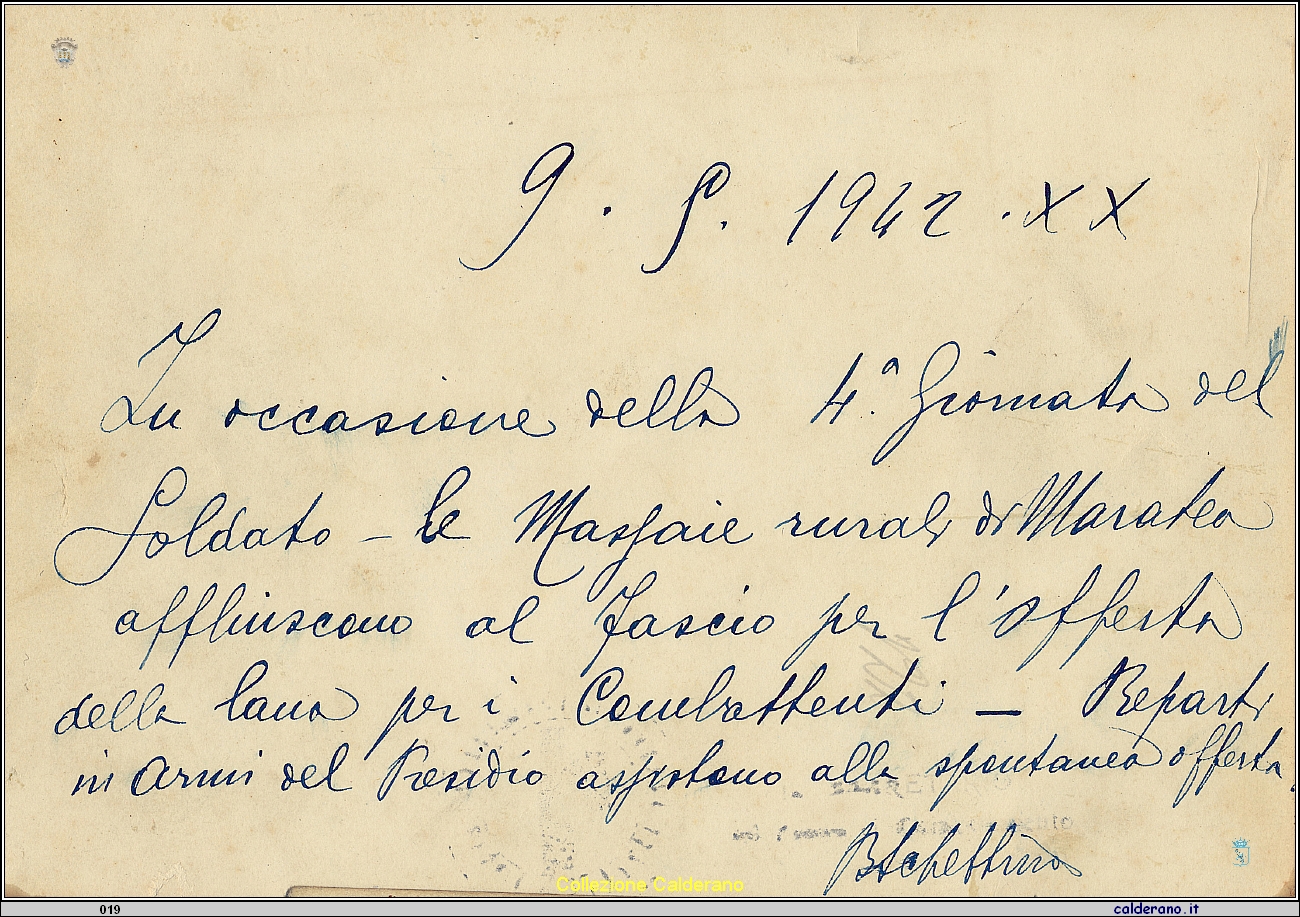 9 . 5. 1942 . XX
In occasione della 4ª Giornata del
Soldato - le Massaie rurali di Maratea
affluiscono al Fascio per l'offerta
della lana per i Combattenti - Reparti
in armi del Presidio assistono alla spontanea offerta.
Collezione Calderano
019
calderano.it